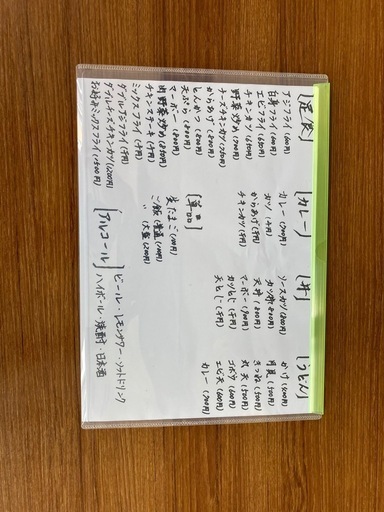 [定食]
アジフライ(600円)
白身フライ(600円)
エビフライ(650円)
チキンカツ(650円)
野菜炒め(700円)
チーズチキンカツ(750円)
からあげ(800円)
とんかつ(800円)
天ぷら(800円)
マーボー(800円)
肉野菜炒め(850円)
チキンステーキ(千円)
ミックスフライ(千円)
ダブルアジフライ(千円)
ダブルチーズチキンカツ(1200円)
お好みミックスフライ(1500円)
[カレー]
カレー(700円)
カツ(千円)
からあげ(千円)
チキンカツ(千円)
[単品]
生たまご(100円)
ご飯(普通)(100円)
〃(大盛)(200円)
[丼]
ソースカツ(800円)
カツ丼(800円)
天丼(800円)
マーボー(900円)
カツとじ(千円)
天とじ(千円)
[うどん]
かけ(400円)
月見(500円)
きつね(500円)
丸天(500円)
ゴボウ(600円)
エビ天(600円)
カレー(700円)
[アルコール]
ビール・レモンサワー・ソフトドリンク
ハイボール・焼酎・日本酒